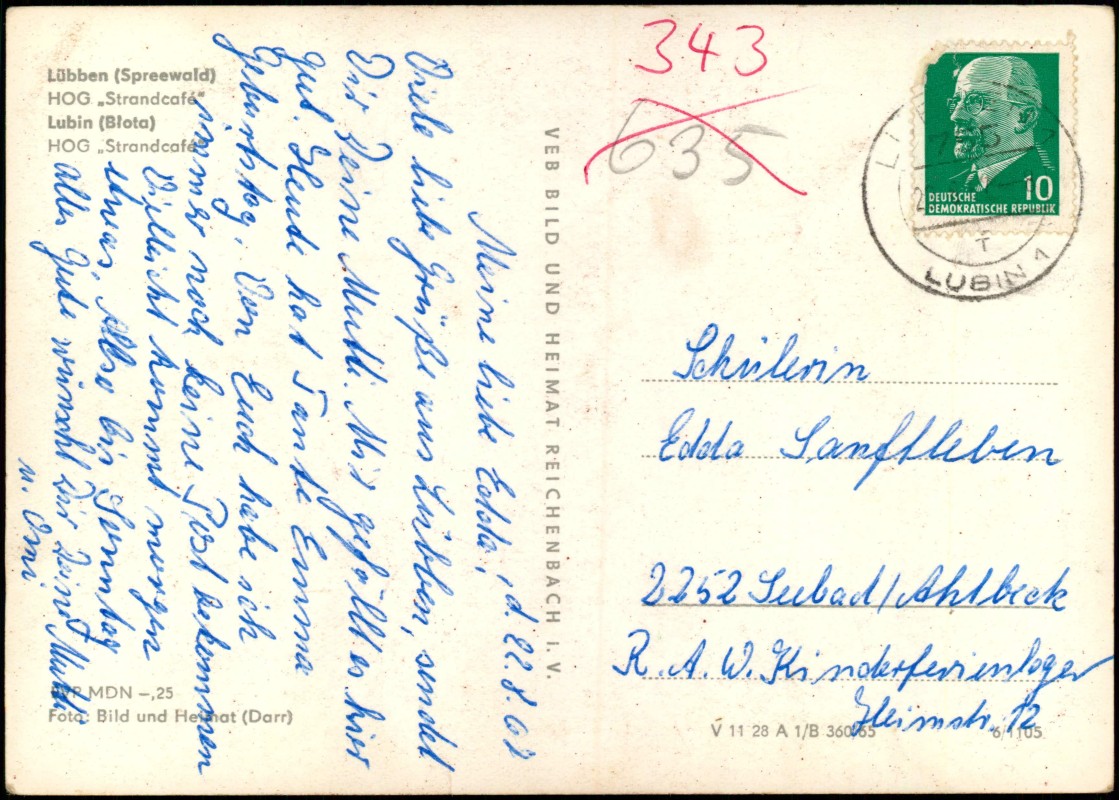 Lübben (Spreewald)
HOG „Strandcafé“
Lubin (Błota)
HOG „Strandcafé
Meine liebe Edda! d. 22.8.68
Viele liebe Grüße aus Lübben, sendet
Dir Deine Mutti. Mir gefällt es hier
gut. Heute hat Tante Emma
Geburtstag. Von Euch habe ich
immer noch keine Post bekommen
Vielleicht kommt morgen
etwas. Also bis Sonntag
alles Gute wünscht Dir Deine Mutti
u. Omi
MDN –,25
Foto: Bild und Heimat (Darr)
VEB BILD UND HEIMAT REICHENBACH I. V.
343
635
DEUTSCHE
DEMOKRATISCHE REPUBLIK
10
LUBIN 1
Schülerin
Edda Sanftleben
2252 Seebad/Ahlbeck
R. A. W. Kinderferienlager
Heimstr. 12
V 11 28 A 1/B 360/65
6/1105